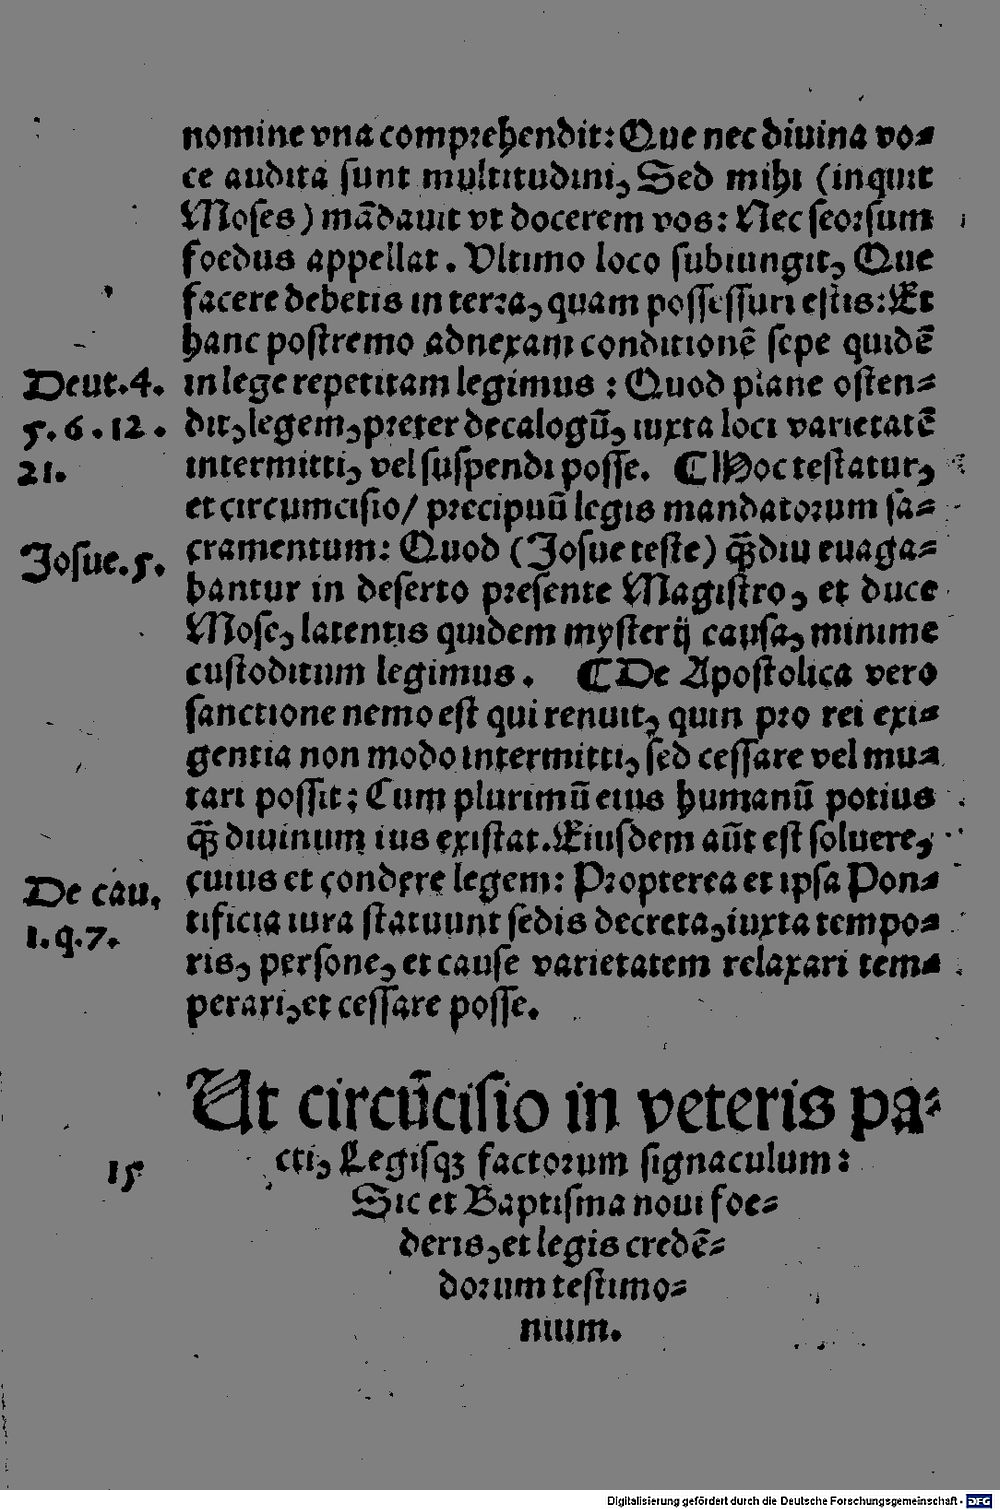 nomine vna comprehendit: Que nec diuina vo⸗
ce audita sunt multitudini, Sed mihi (inquit
Moses) mādauit vt docerem vos: Nec seorsum
foedus appellat. Vltimo loco subiungit, Que
facere debetis in terra, quam possessuri estis: Et
hanc postremo adnexam conditionē sepe quidē
Deut.4.
5.6.12.
21.
in lege repetitam legimus: Quod plane osten⸗
dit, legem, preter decalogū, iuxta loci varietatē
intermitti, vel suspendi posse. ¶ Hoc testatur,
et circumcisio/ precipuū legis mandatorum sa⸗
Josue.5.
cramentum: Quod (Josue teste) q̄ʒdiu euaga⸗
bantur in deserto presente Magistro, et duce
Mose, latentis quidem mysterij causa, minime
custoditum legimus. ¶ De Apostolica vero
sanctione nemo est qui renuit, quin pro rei exi⸗
gentia non modo intermitti, sed cessare vel mu⸗
tari possit; Cum plurimū eius humanū potius
q̄ʒ diuinum ius existat. Eiusdem aūt est soluere,
De cau.
1.q.7.
cuius et condere legem: Propterea et ipsa Pon⸗
tificia iura statuunt sedis decreta, iuxta tempo⸗
ris, persone, et cause varietatem relaxari tem⸗
perari, et cessare posse.
Ut circūcisio in veteris pa⸗
15
cti, Legisqʒ factorum signaculum:
Sic et Baptisma noui foe⸗
deris, et legis credē⸗
dorum testimo⸗
nium.
Digitalisierung gefördert durch die Deutsche Forschungsgemeinschaft - DFG